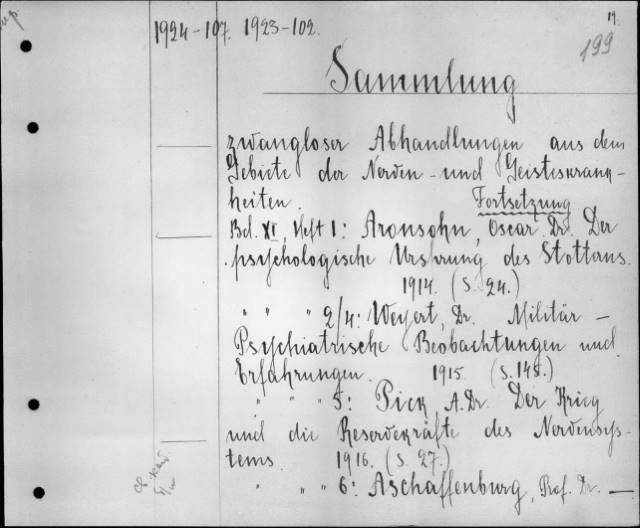 19.
1924-107. 1923-102.
199
Sammlung
zwangloser Abhandlungen aus dem
Gebiete der Nerven- und Geisteskrank-
heiten. Fortsetzung
Bd. XI, Heft 1: Aronsohn, Oscar Dr. Der
psychologische Ursprung des Stotterns.
1914. (S. 24.)
" " " 2/4: Weyert, Dr. Militär-
Psychiatrische Beobachtungen und
Erfahrungen. 1915. (S. 148.)
" " " 5: Pick, A. Dr. Der Krieg
und die Reservekräfte des Nervensys-
tems. 1916. (S. 27.)
" " " 6: Aschaffenburg, Prof. Dr. —